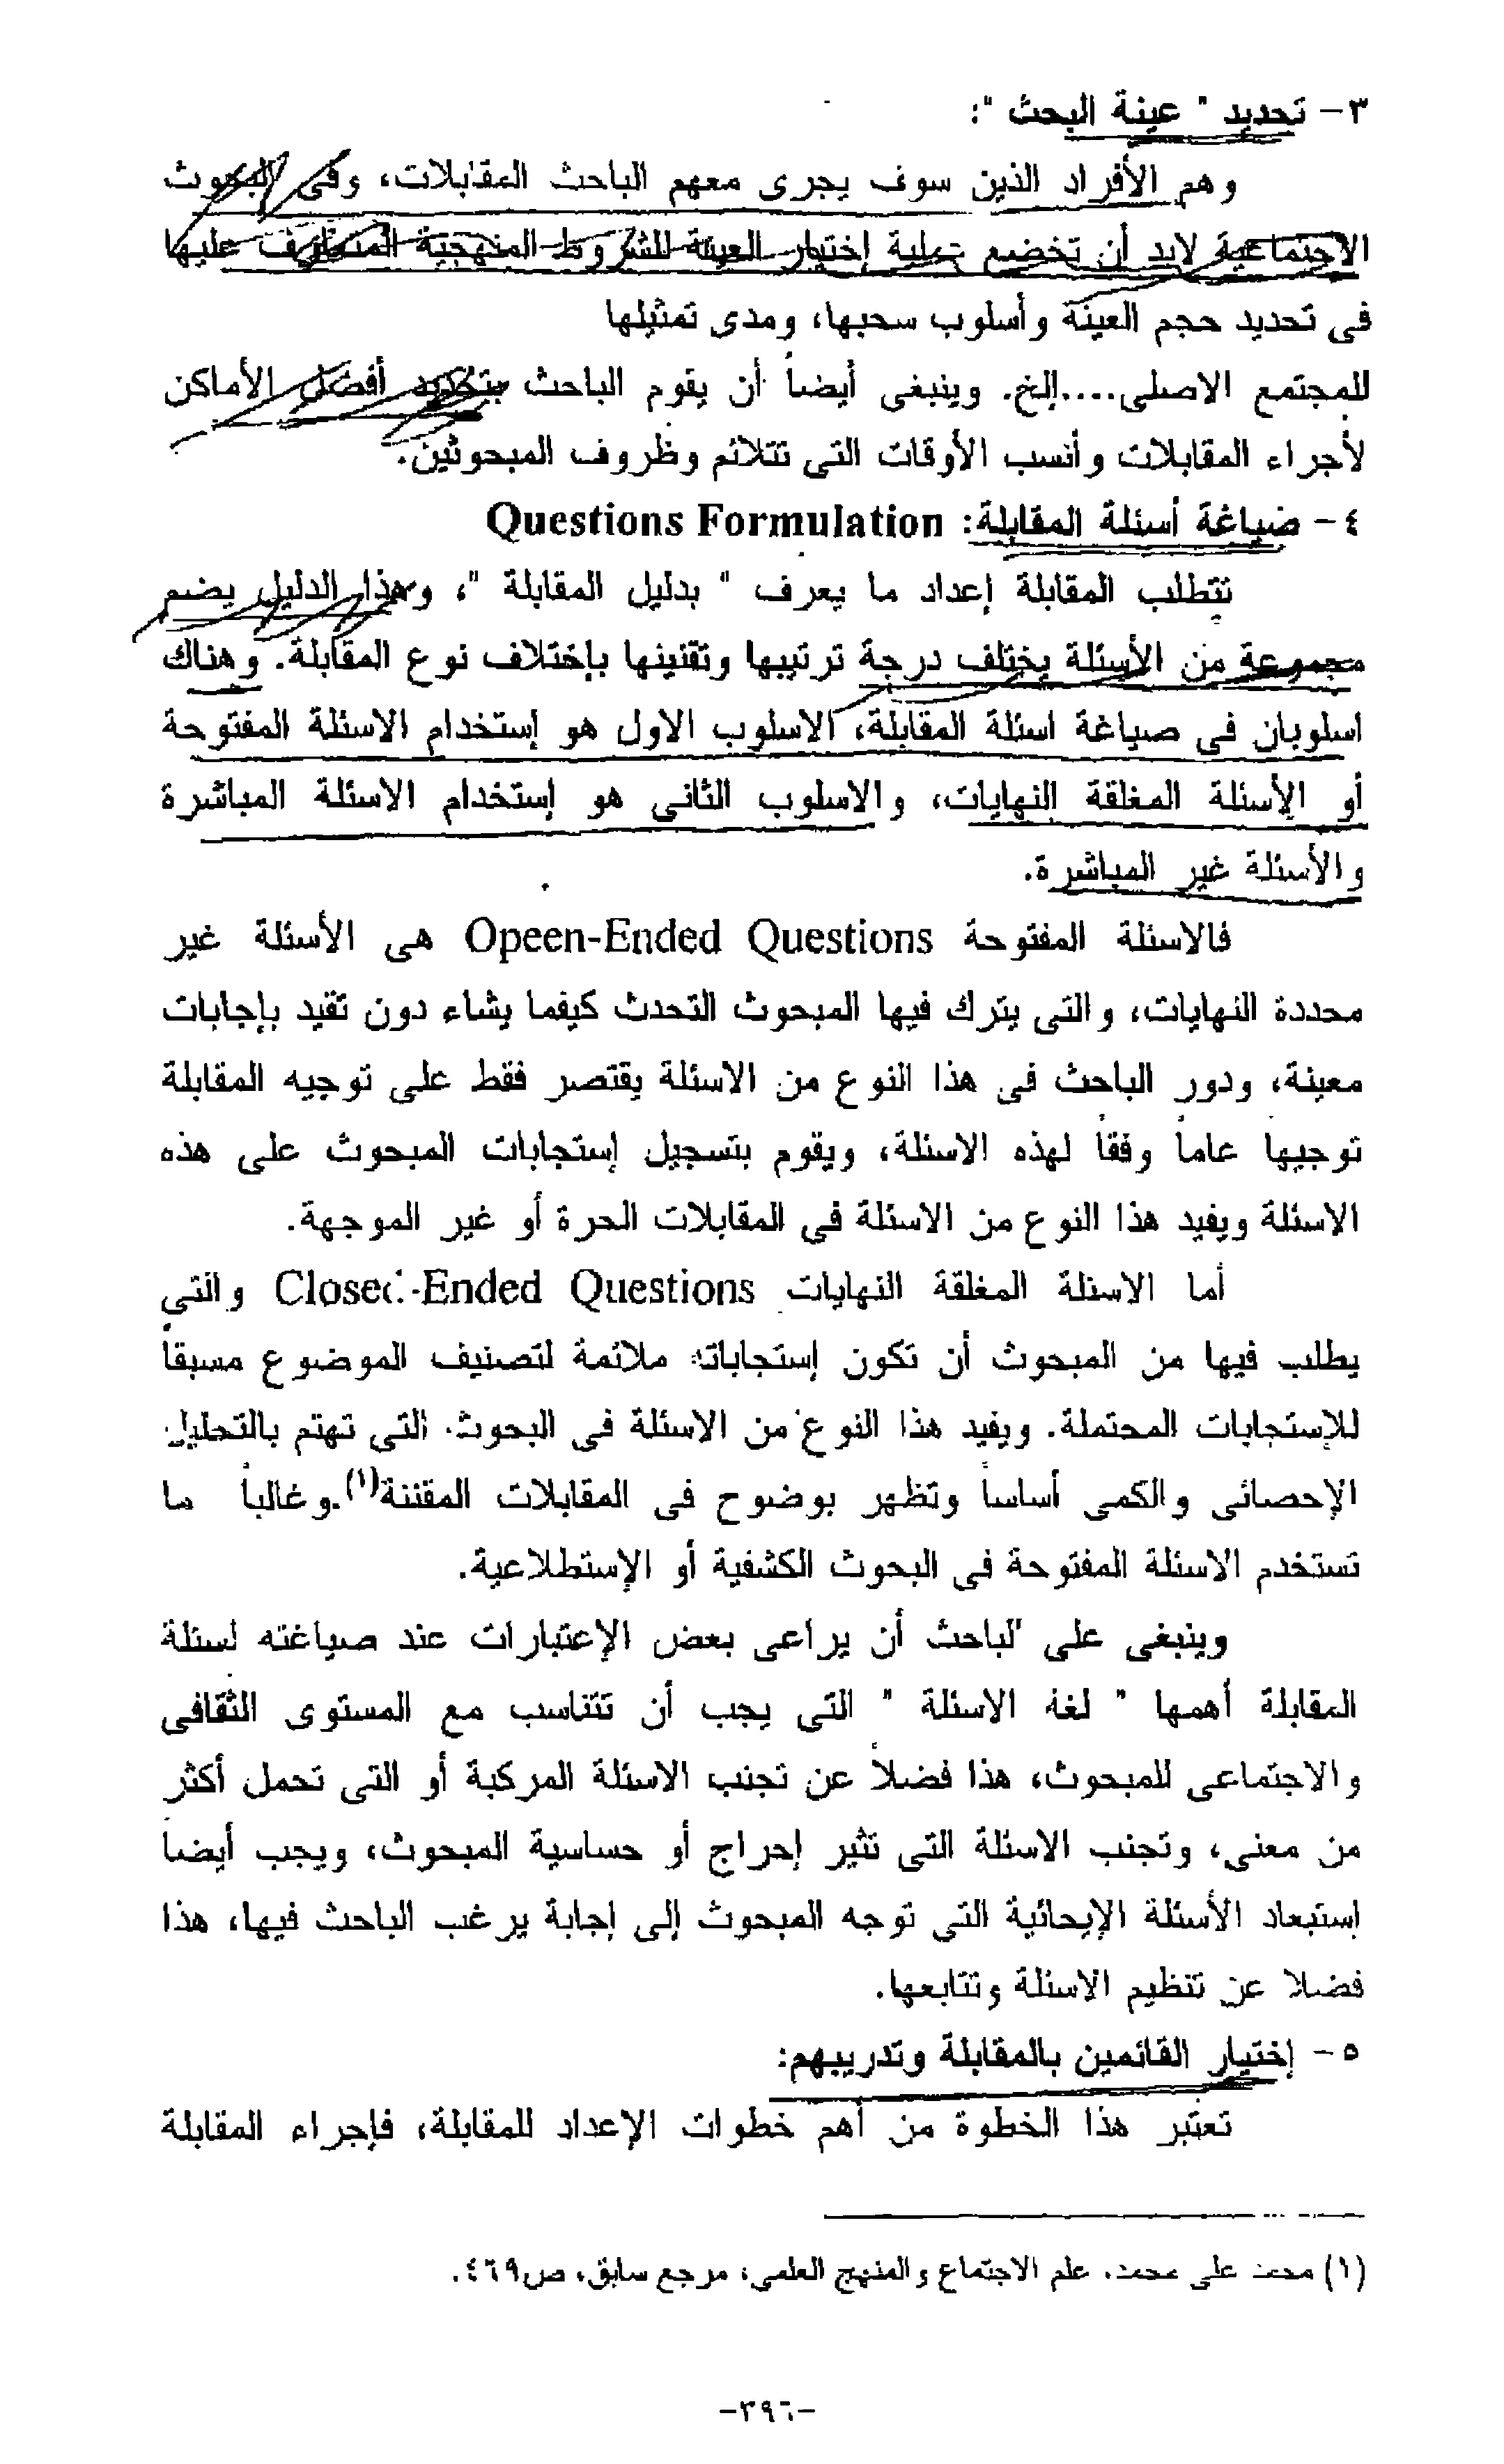 ٣- تحديد " عينة البحث ":
وهم الأفراد الذين سوف يجرى معهم الباحث المقابلات، وفى البحوث
الاجتماعية لابد أن تخضع عملية إختيار العينة للشروط المنهجية المتعارف عليها
فى تحديد حجم العينة وأسلوب سحبها، ومدى تمثيلها
للمجتمع الاصلى....إلخ. وينبغى أيضاً أن يقوم الباحث بتحديد أفضل الأماكن
لأجراء المقابلات وأنسب الأوقات التى تتلائم وظروف المبحوثين.
٤- صياغة أسئلة المقابلة: Questions Formulation
تتطلب المقابلة إعداد ما يعرف " بدليل المقابلة "، وهذا الدليل يضم
مجموعة من الأسئلة يختلف درجة ترتيبها وتقنينها بإختلاف نوع المقابلة. وهناك
اسلوبان فى صياغة اسئلة المقابلة، الاسلوب الاول هو إستخدام الاسئلة المفتوحة
أو الأسئلة المغلقة النهايات، والاسلوب الثانى هو إستخدام الاسئلة المباشرة
والأسئلة غير المباشرة.
فالاسئلة المفتوحة Opeen-Ended Questions هى الأسئلة غير
محددة النهايات، والتى يترك فيها المبحوث التحدث كيفما يشاء دون تقيد بإجابات
معينة، ودور الباحث فى هذا النوع من الاسئلة يقتصر فقط على توجيه المقابلة
توجيها عاماً وفقاً لهذه الاسئلة، ويقوم بتسجيل إستجابات المبحوث على هذه
الاسئلة ويفيد هذا النوع من الاسئلة فى المقابلات الحرة أو غير الموجهة.
أما الاسئلة المغلقة النهايات Closed-Ended Questions والتى
يطلب فيها من المبحوث أن تكون إستجاباته ملائمة لتصنيف الموضوع مسبقاً
للإستجابات المحتملة. ويفيد هذا النوع من الاسئلة فى البحوث التى تهتم بالتحليل
الإحصائى والكمى أساساً وتظهر بوضوح فى المقابلات المقننة(١).وغالباً ما
تستخدم الاسئلة المفتوحة فى البحوث الكشفية أو الإستطلاعية.
وينبغى على الباحث أن يراعى بعض الإعتبارات عند صياغته لسئلة
المقابلة أهمها " لغة الاسئلة " التى يجب أن تتناسب مع المستوى الثقافى
والاجتماعى للمبحوث، هذا فضلاً عن تجنب الاسئلة المركبة أو التى تحمل أكثر
من معنى، وتجنب الاسئلة التى تثير إحراج أو حساسية المبحوث، ويجب أيضاً
إستبعاد الأسئلة الإيحائية التى توجه المبحوث إلى إجابة يرغب الباحث فيها، هذا
فضلا عن تنظيم الاسئلة وتتابعها.
٥- إختيار القائمين بالمقابلة وتدريبهم:
تعتبر هذا الخطوة من أهم خطوات الإعداد للمقابلة، فإجراء المقابلة
(١) محمد على محمد، علم الاجتماع والمنهج العلمى، مرجع سابق، ص٤٦٩.
-٣٩٦-